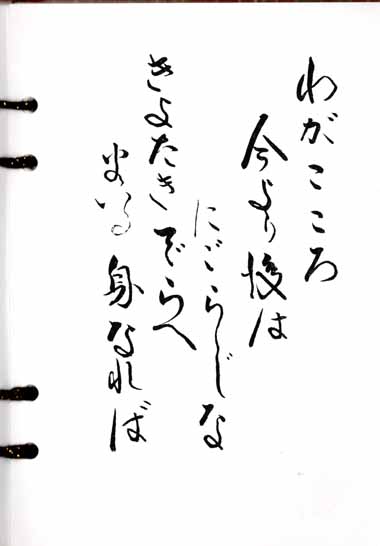 わがこころ
今より後は
にごらじな
きよたきでらへ
まいる身なれば